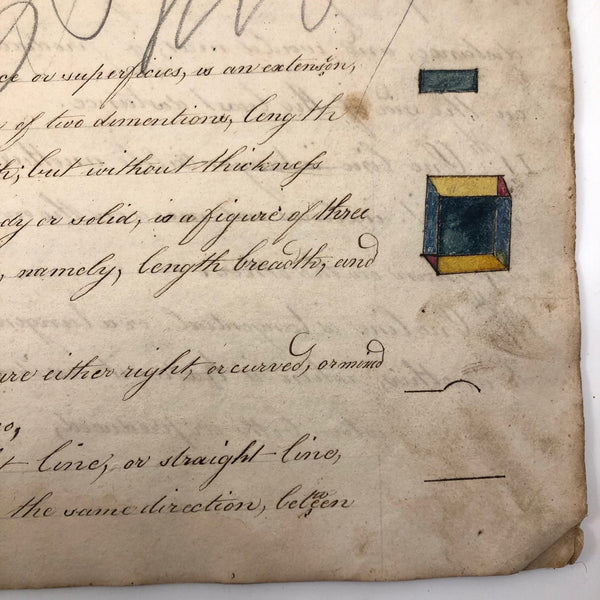 ce or superficies, is an extenson,
of two dimentions, length
h; but without thickness
dy or solid, is a figure of three
, namely, length breadth, and
are either right, or curved, or mixed
o,
t line, or straight line,
the same direction, between